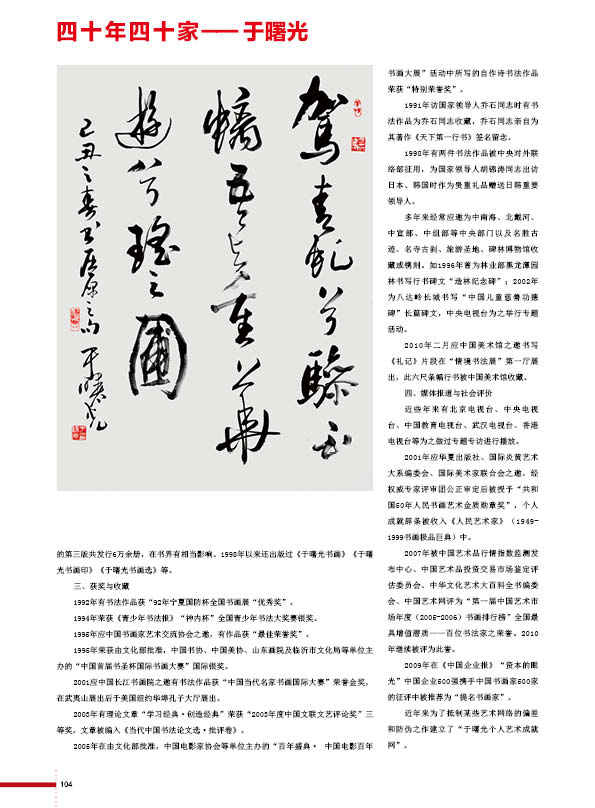 四十年四十家——于曙光
駕青虬兮驂白
螭吾与重華
遊兮瑤之圃
己丑之春书屈原之句 于曙光
的第三版共发行6万余册，在书界有相当影响。1998年以来还出版过《于曙光书画》《于曙
光书画印》《于曙光书画选》等。
三、获奖与收藏
1992年有书法作品获“92年宁夏国防杯全国书画展“优秀奖”。
1994年荣获《青少年书法报》“神内杯”全国青少年书法大奖赛银奖。
1996年应中国书画家艺术交流协会之邀，有作品获“最佳荣誉奖”。
1998年荣获由文化部批准，中国书协、中国美协、山东画院及临沂市文化局等单位主
办的“中国首届书圣杯国际书画大赛”国际银奖。
2001应中国长江书画院之邀有书法作品获“中国当代名家书画国际大赛”荣誉金奖，
在武夷山展出后于美国纽约华埠孔子大厅展出。
2003年有理论文章“学习经典·创造经典”荣获“2003年度中国文联文艺评论奖”三
等奖，文章被编入《当代中国书法论文选·批评卷》。
2005年在由文化部批准，中国电影家协会等单位主办的“百年盛典· 中国电影百年
书画大展”活动中所写的自作诗书法作品
荣获“特别荣誉奖”。
1991年访国家领导人乔石同志时有书
法作品为乔石同志收藏，乔石同志亲自为
其著作《天下第一行书》签名留念。
1998年有两件书法作品被中央对外联
络部征用，为国家领导人胡锦涛同志出访
日本、韩国时作为贵重礼品赠送日韩重要
领导人。
多年来经常应邀为中南海、北戴河、
中宣部、中组部等中央部门以及名胜古
迹、名寺古刹、旅游圣地、碑林博物馆收
藏或镌刻。如1996年曾为林业部黑龙潭园
林书写行书碑文“造林纪念碑”；2002年
为八达岭长城书写“中国儿童慈善功德
碑”长篇碑文，中央电视台为之举行专题
活动。
2010年二月应中国美术馆之邀书写
《礼记》片段在“情境书法展”第一厅展
出，此六尺条幅行书被中国美术馆收藏。
四、媒体报道与社会评价
近些年来有北京电视台、中央电视
台、中国教育电视台、武汉电视台、香港
电视台等为之做过专题专访进行播放。
2001年应华夏出版社、国际炎黄艺术
大系编委会、国际美术家联合会之邀，经
权威专家评审团公正审定后被授予“共和
国50年人民书画艺术金质勋章奖”，个人
成就辞条被收入《人民艺术家》（1949-
1999书画极品巨典）中。
2007年被中国艺术品行情指数监测发
布中心、中国艺术品投资交易市场鉴定评
估委员会、中华文化艺术大百科全书编委
会、中国艺术网评为“第一届中国艺术市
场年度（2005-2006）书画排行榜”全国最
具增值潜质——百位书法家之荣誉。2010
年继续被评为此誉。
2009年在《中国企业报》“资本的眼
光”中国企业500强携手中国书画家500家
的征评中被推荐为“提名书画家”。
近年来为了抵制某些艺术网络的偏差
和防伪之作建立了“于曙光个人艺术成就
网”。
104